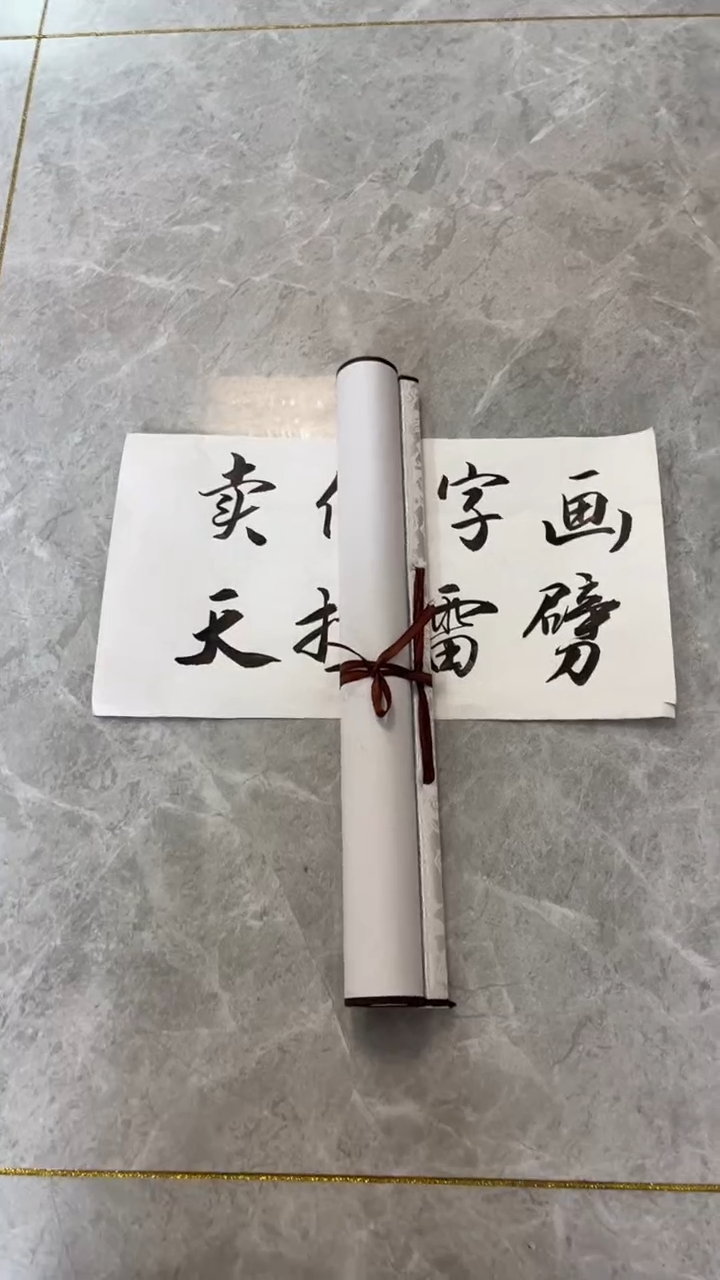 卖 字画
天 雷劈